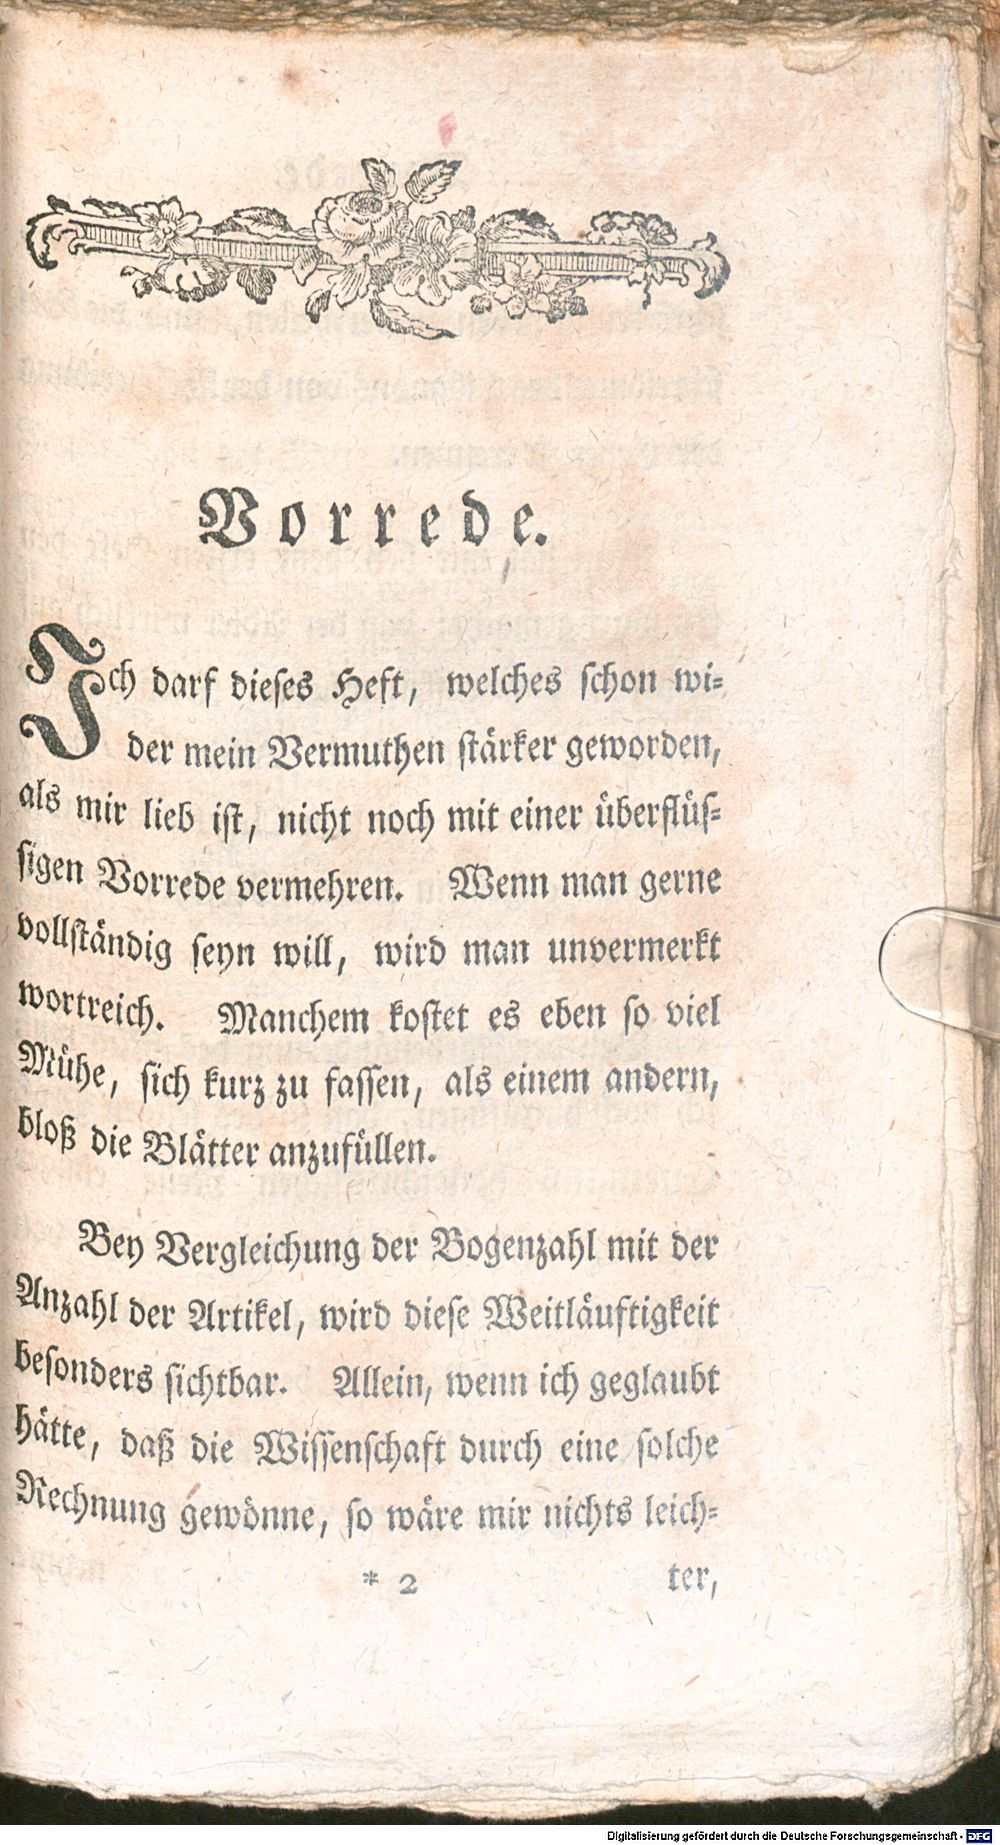 Vorrede.
Ich darf dieses Heft, welches schon wi⸗
der mein Vermuthen stärker geworden,
als mir lieb ist, nicht noch mit einer überflüs⸗
sigen Vorrede vermehren. Wenn man gerne
vollständig seyn will, wird man unvermerkt
wortreich. Manchem kostet es eben so viel
Mühe, sich kurz zu fassen, als einem andern,
bloß die Blätter anzufüllen.
Bey Vergleichung der Bogenzahl mit der
Anzahl der Artikel, wird diese Weitläuftigkeit
besonders sichtbar. Allein, wenn ich geglaubt
hätte, daß die Wissenschaft durch eine solche
Rechnung gewönne, so wäre mir nichts leich⸗
* 2 ter,
Digitalisierung gefördert durch die Deutsche Forschungsgemeinschaft - DFG